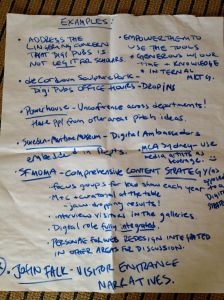 EXAMPLES:
• ADDRESS THE
LINGERING CONCERN
THAT DIGI PUBS IS
NOT LEGIT 4 SCHOLARS.
• EMPOWER THEM TO
USE THE TOOLS
• GENEROUS W/ OUR
TIME + KNOWLEDGE
• INTERNAL
MKTG.
• deCordova Sculpture Park -
Digi Pubs OFFICE HOURS - DROP INS
• Powerhouse - Unconference across departments!
Have ppl from other areas pitch ideas.
• Sweden - Maritime Museum - Digital Ambassadors
embedded in Depts.
• MCA Sydney - use
media artists as
leverage.
• SFMOMA - Comprehensive CONTENT STRATEGY
- focus groups for how each year
- Mtc + curatorial at the table
- jaw dropping results!
- interview visitors in the galleries
- Digital role fully integrated.
- Personas for web redesign integrated
in other areas for discussion.
• JOHN FALK - VISITOR ENTRANCE
NARRATIVES.